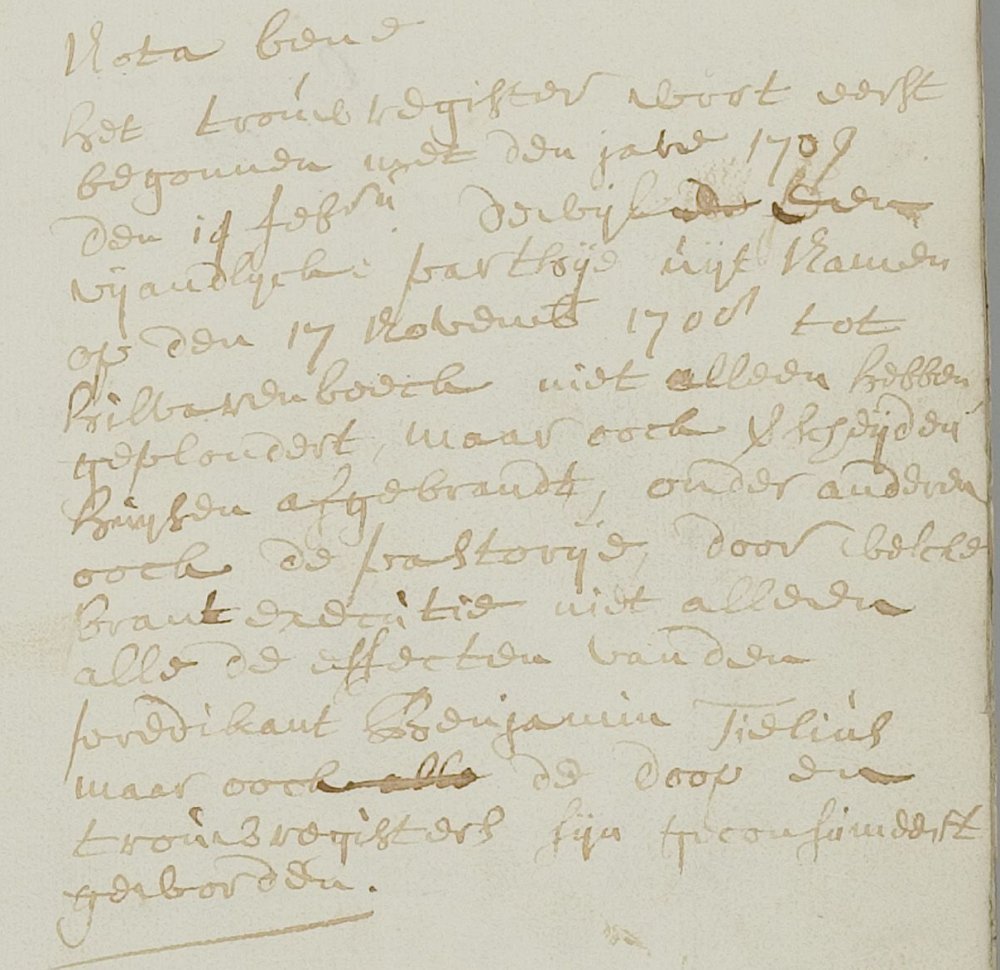 Nota bene
het trouwregister wort eerst
begonnen met den jare 1709
den 14 febru. dewijl een
vijandlycke parthije uijt Namen
op den 17 Novemb 1708 tot
hilvarenbeeck niet alleen hebben
geplondert, maar oock scheijden
huijsen afgebrandt, onder anderen
oock de pastorije, door welcke
brant executie niet alleen
alle de effecten van den
predikant Benjamin Tielius
maar oock alle de doop en
trouwregisters sijn geconsumeert
geworden.